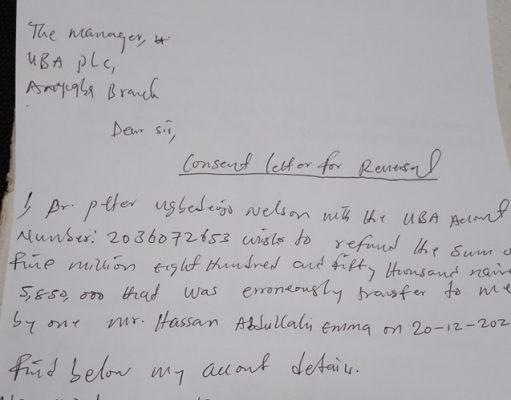 The manager,
UBA plc,
Anyigba Branch
Dear sir,
Consent letter for Reversal
I, Dr. peter ugbedeojo Nelson with the UBA Account
Number: 2036072653 wish to refund the sum
five million eight Hundred and fifty thousand naira
5,850,000 that was erroneously transfer to me
by one Mr. Hassan Abdullahi Emma on 20-12-202
find below my account details.